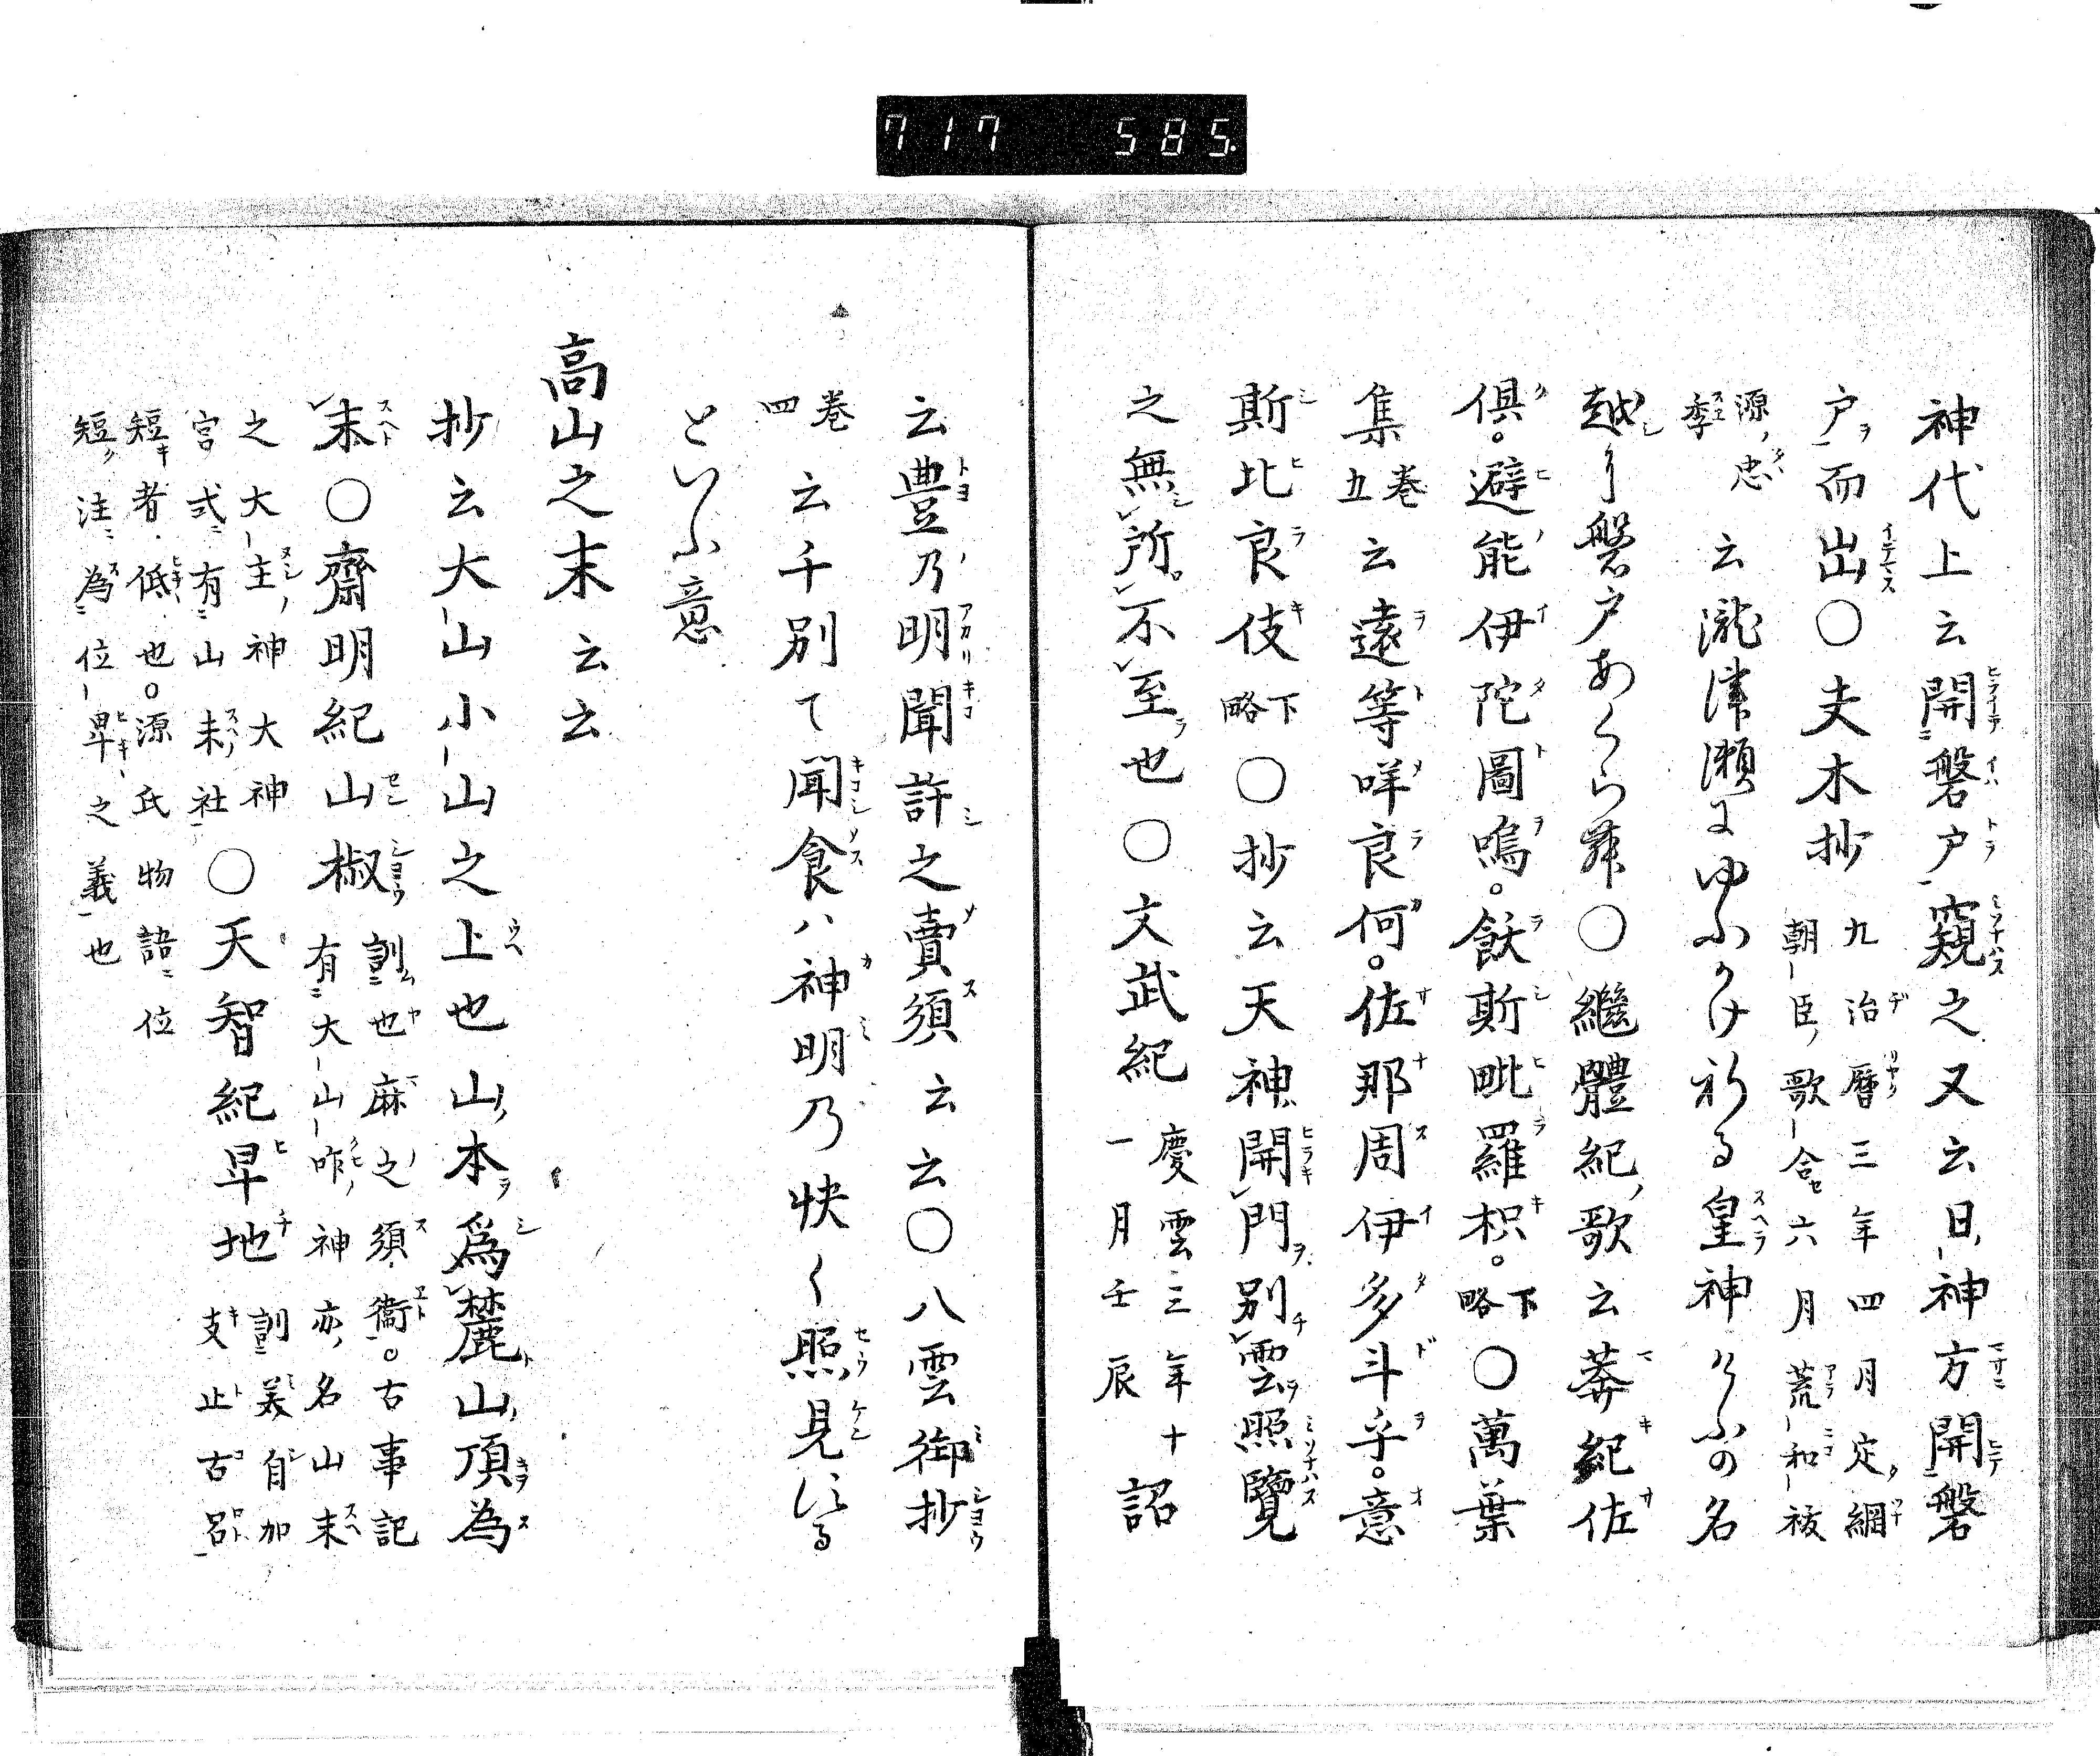 717 585.
神代上云開磐戸窺之又云日神方開磐
戸而出〇夫木抄
九治暦三年四月定綱
朝臣歌合六月荒和祓
源忠
季
云瀧津瀬にゆふかけ祈る皇神けふの名
越り磐戸あくらん〇繼體紀歌云莾紀佐
倶。避能伊陀圖嗚。飫斯毗羅枳。下略〇萬葉
集五巻云遠等咩良何。佐那周伊多斗乎。意
斯比良伎下略〇抄云天神開門別雲照覽
之無所不至也〇文武紀
慶雲三年十
一月壬辰
詔
云豊乃明聞許之賣須云云〇八雲御抄
巻四
云千別て聞食ハ神明乃快く照見に
といふ意
高山之末云云
抄云大山小山之上也山本爲麓山頂為
末〇齋明紀山椒
訓也麻之須衞。古事記
有大山咋神亦名山末
之大主神大神神
宮式有山末社
〇天智紀卑地
訓美自加
支止古呂
短者低也。源氏物語位
短注為位卑之義也